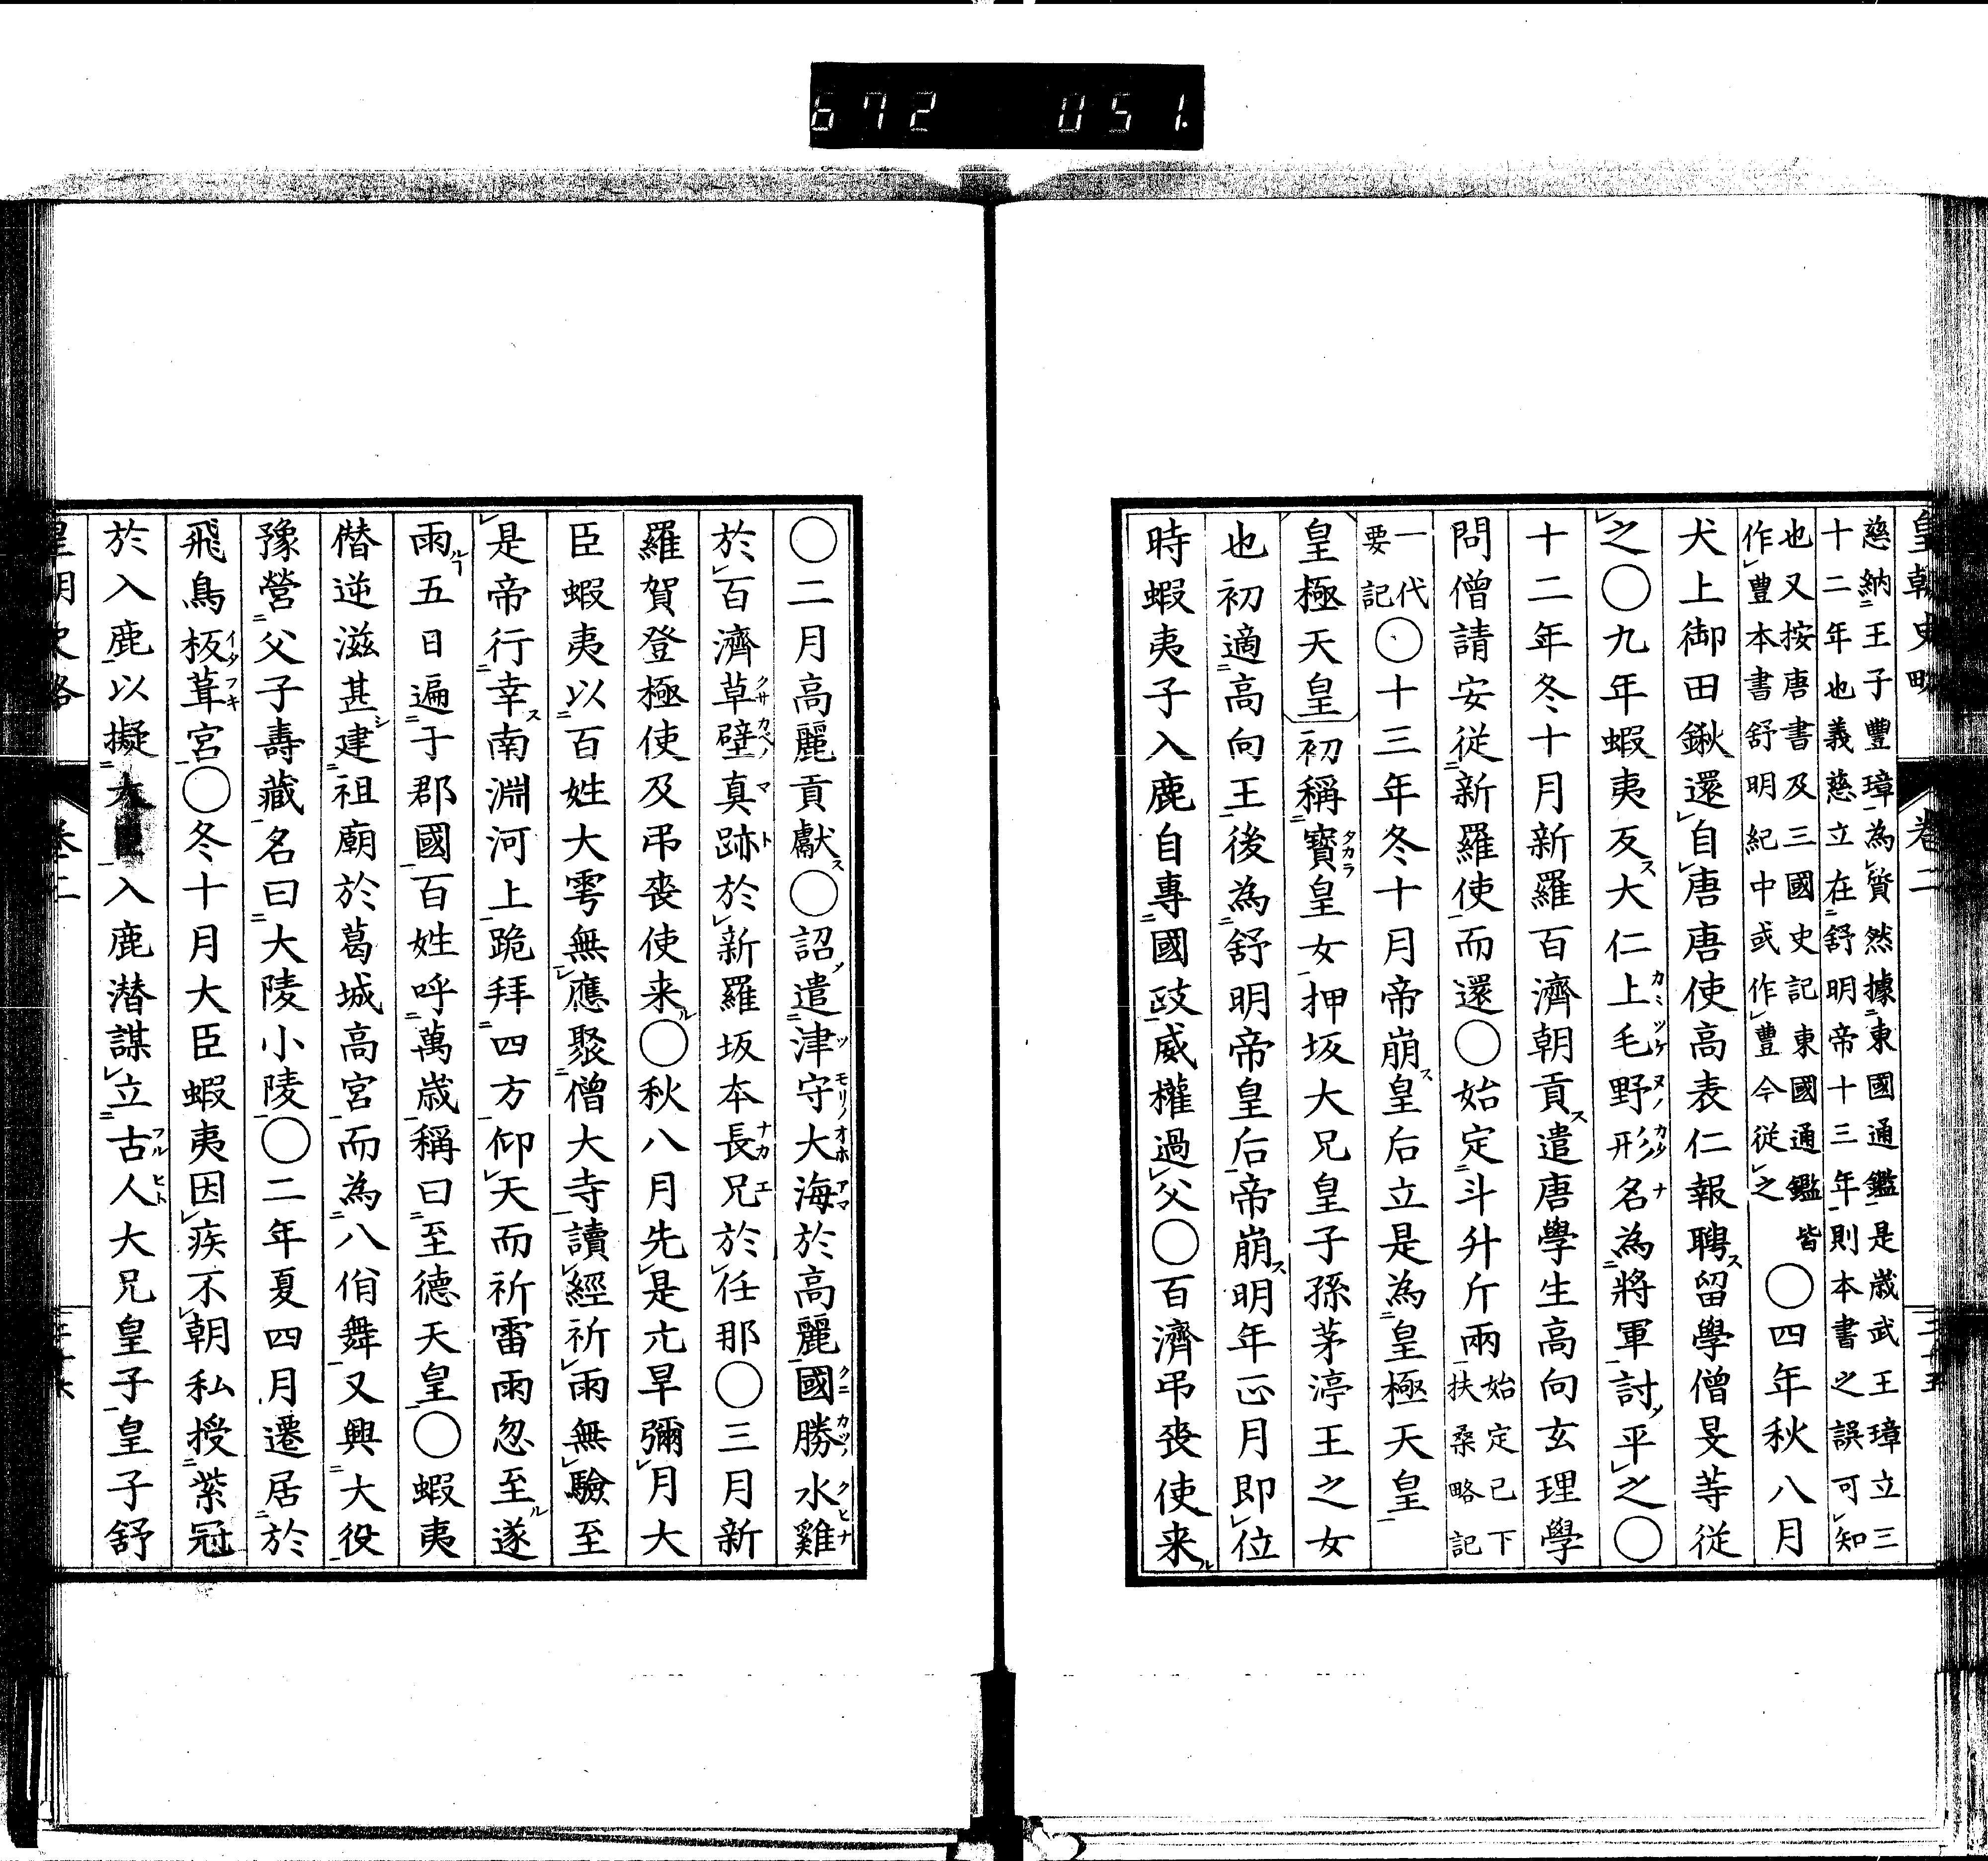 672 051
皇朝史略 卷二 三十五
慈納王子豐璋為質然據東國通鑑是歲武王璋立三
十二年也義慈立在舒明帝十三年則本書之誤可知
也又按唐書及三國史記東國通鑑皆
作豐本書舒明紀中或作豐今從之
○四年秋八月
犬上御田鍬還自唐唐使高表仁報聘留學僧旻等從
之○九年蝦夷反大仁上毛野形名為將軍討平之○
十二年冬十月新羅百濟朝貢遣唐學生高向玄理學
問僧請安從新羅使而還○始定斗升斤兩始定已下扶桑略記
一代要記○十三年冬十月帝崩皇后立是為皇極天皇
皇極天皇初稱寶皇女押坂大兄皇子孫茅渟王之女
也初適高向王後為舒明帝皇后帝崩明年正月即位
時蝦夷子入鹿自專國政威權過父○百濟弔喪使来
○二月高麗貢獻○詔遣津守大海於高麗國勝水雞
於百濟草壁真跡於新羅坂本長兄於任那○三月新
羅賀登極使及弔喪使来○秋八月先是亢旱彌月大
臣蝦夷以百姓大雩無應聚僧大寺讀經祈雨無驗至
是帝行幸南淵河上跪拜四方仰天而祈雷雨忽至遂
雨五日遍于郡國百姓呼萬歳稱曰至德天皇○蝦夷
僭逆滋甚建祖廟於葛城高宮而為八佾舞又興大役
豫營父子壽藏名曰大陵小陵○二年夏四月遷居於
飛鳥板葺宮○冬十月大臣蝦夷因疾不朝私授紫冠
於入鹿以擬大入鹿潜謀立古人大兄皇子皇子舒
皇朝史略 卷二 三十六